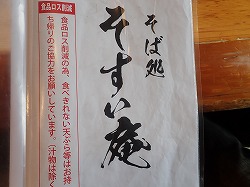 そば処
そすい庵
食品ロス削減
食品ロス削減の為、食べきれない天ぷら等はお持
ち帰りのご協力をお願いしています。(汁物は除く